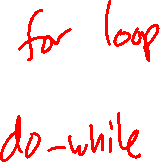 for loop
do-while